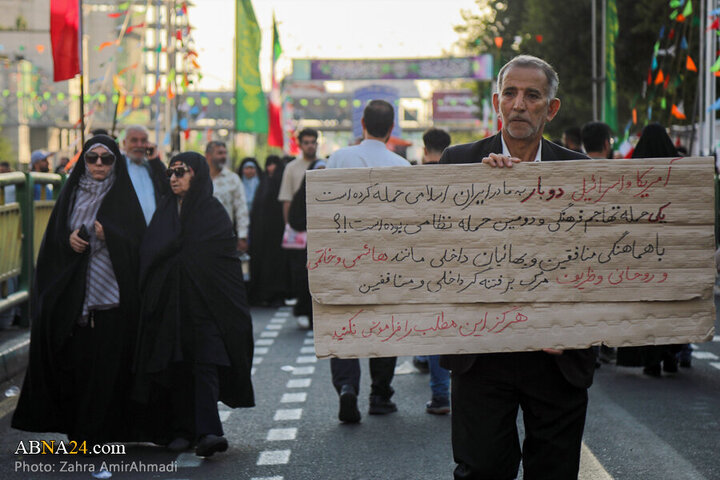 آمریکا و اسرائیل دوبار به ما در ایران اسلامی حمله کرده است
یک حمله تهاجم فرهنگی و دومین حمله نظامی بوده است !!؟
با هماهنگی منافقین و بهائیان داخلی مانند هاشمی و خاتمی
و روحانی و ظریف مرگ بر فتنه گر داخلی و منافقین
هرگز این مطلب را فراموش نکنید
ABNA24.com
Photo: Zahra AmirAhmadi